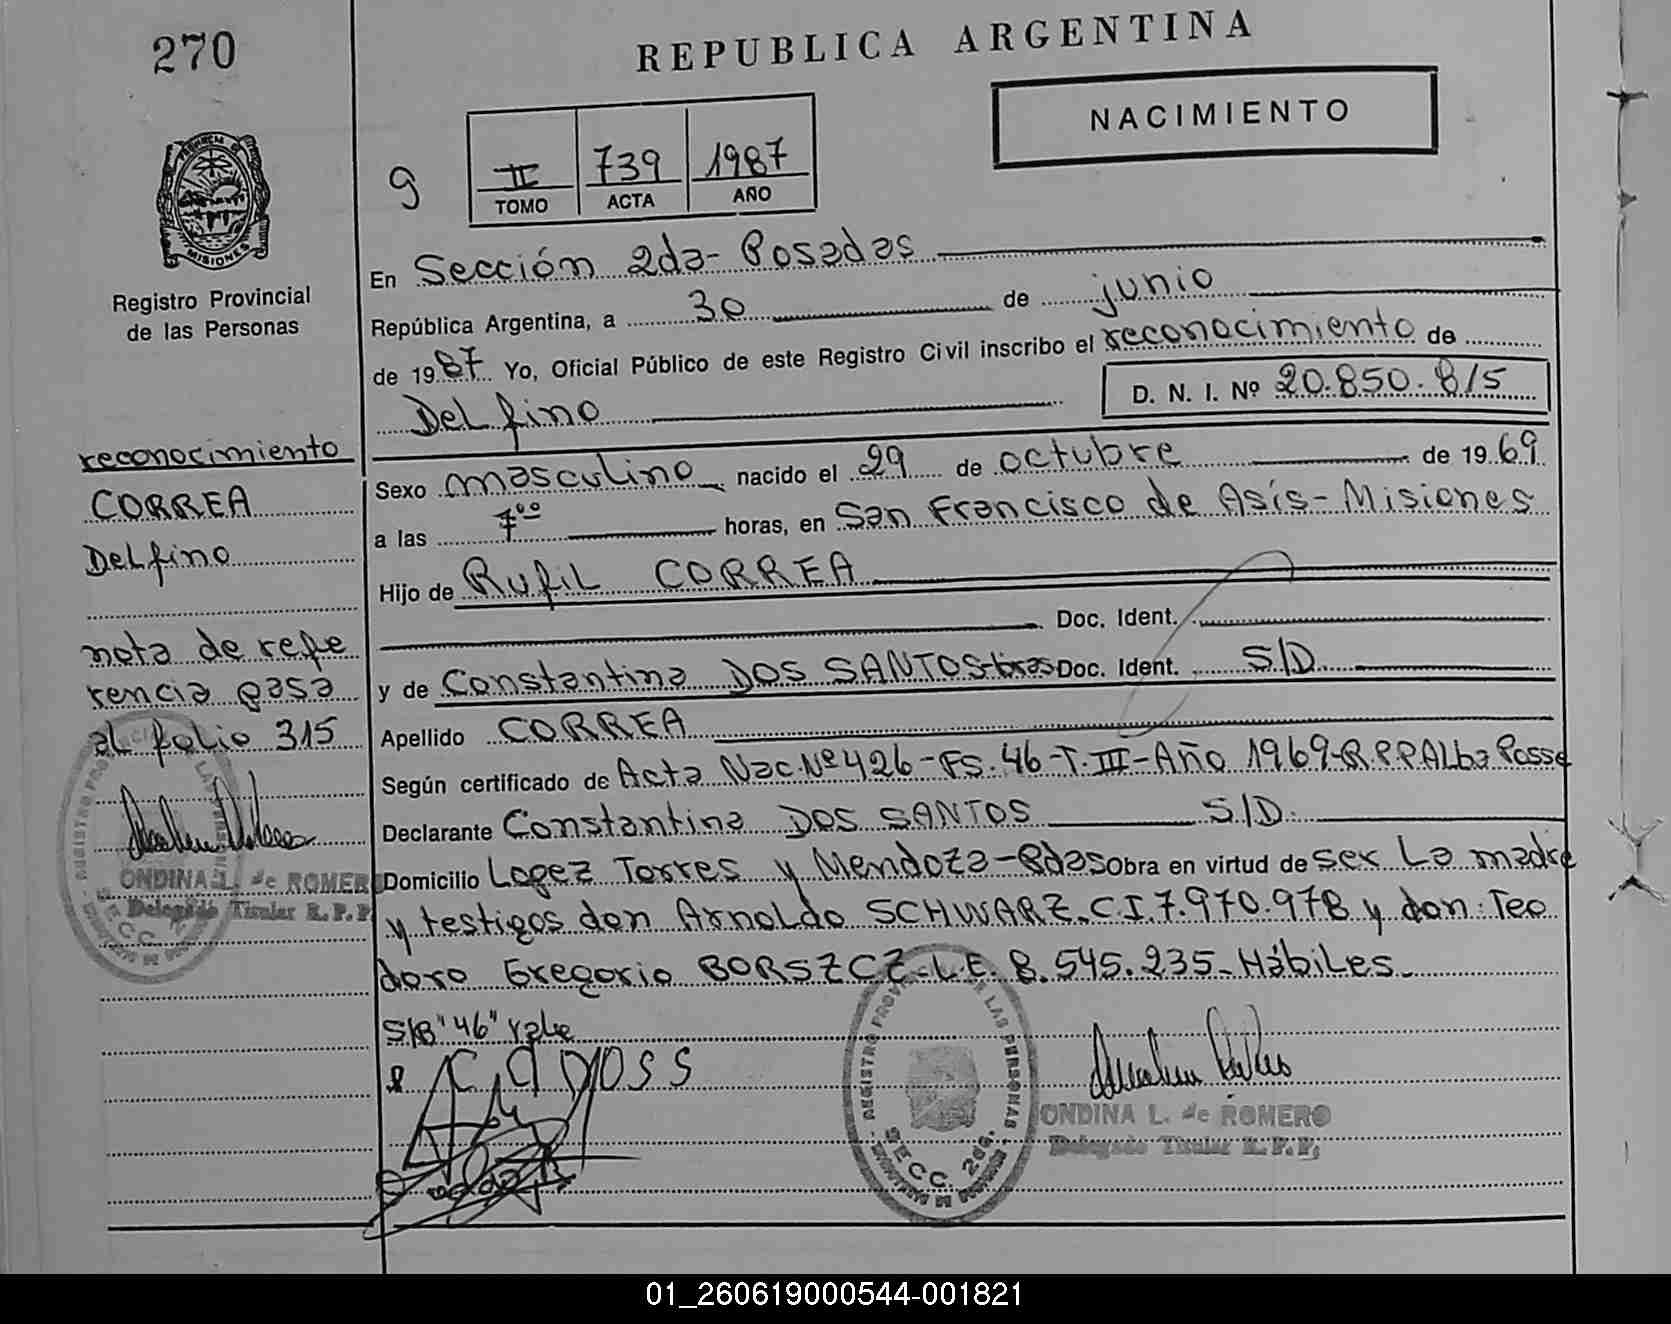 270
REPUBLICA ARGENTINA
NACIMIENTO
PROVINCIA DE
MISIONES
Registro Provincial
de las Personas
9
II 739 1987
TOMO ACTA AÑO
En Sección 2da- Posadas
República Argentina, a 30 de junio
de 1987 Yo, Oficial Público de este Registro Civil inscribo el reconocimiento de
Delfino
D. N. I. Nº 20.850.815
reconocimiento
CORREA
Delfino
nota de refe
rencia pasa
al folio 315
ONDINA L. de ROMERO
Delegado Titular R.P.P.
Sexo masculino nacido el 29 de octubre de 1969
a las 7⁰⁰ horas, en San Francisco de Asís-Misiones
Hijo de Rufil CORREA
Doc. Ident.
y de Constantina DOS SANTOS Doc. Ident. S/D
Apellido CORREA
Según certificado de Acta Nac.Nº426-Fs.46-T.III-Año 1969-R.P.PAlba Posse
Declarante Constantina DOS SANTOS S/D.
Domicilio Lopez Torres y Mendoza-Pdas Obra en virtud de ser La madre
y testigos don Arnoldo SCHWARZ.C.I.7.970.978 y don: Teo
doro Gregorio BORSZCZ-L.E. 8.545.235-Hábiles.
S/B "46" Vale
REGISTRO PROV DE LAS PERSONAS
SECC. 2da.
ONDINA L. de ROMERO
Delegado Titular R.P.P.
01_260619000544-001821